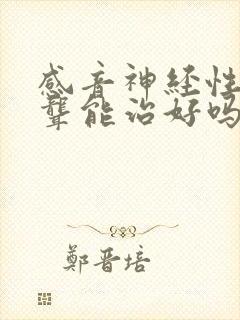 感音神経性
聾能治好吗
鄭晋培